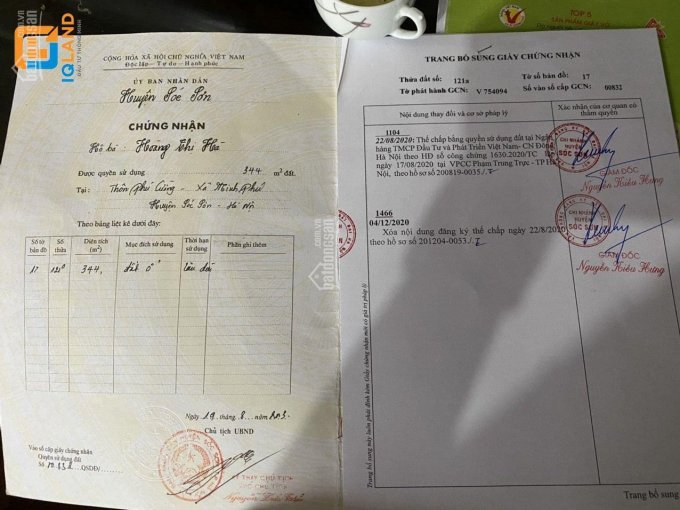 IQLAND
ĐẦU TƯ THÔNG MINH
batdongsan
.com.vn
TOP 5
CỘNG HÒA XÃ HỘI CHỦ NGHĨA VIỆT NAM
Độc lập - Tự do - Hạnh phúc
ỦY BAN NHÂN DÂN
Huyện Sóc Sơn
CHỨNG NHẬN
Hộ bà: Hoàng Thị Hà
Được quyền sử dụng 344 m² đất
Tại: Thôn Phú Cường - Xã Minh Phú
Huyện Sóc Sơn - Hà Nội
Theo bảng liệt kê dưới đây:
Số tờ bản đồ
Số thửa
Diện tích (m²)
Mục đích sử dụng
Thời hạn sử dụng
Phần ghi thêm
17 121a 344 đất ở lâu dài
Ngày 19 tháng 8 năm
Chủ tịch UBND
Vào sổ cấp giấy chứng nhận
Quyền sử dụng đất
Số QSDĐ/
KT THAY CHỦ TỊCH
PHÓ CHỦ TỊCH
TRANG BỔ SUNG GIẤY CHỨNG NHẬN
Thửa đất số: 121a Tờ bản đồ số: 17
Tờ phát hành GCN: V 754094 Số vào sổ cấp GCN: 00832
Nội dung thay đổi và cơ sở pháp lý
Xác nhận của cơ quan có thẩm quyền
1104
22/08/2020: Thế chấp bằng quyền sử dụng đất tại Ngân
hàng TMCP Đầu Tư và Phát Triển Việt Nam- CN Đông
Hà Nội theo HĐ số công chứng 1630.2020/TC lập
ngày 17/08/2020 tại VPCC Phạm Trung Trực - TP Hà
Nội, theo hồ sơ số 200819-0035./.
CHI NHÁNH
HUYỆN
SÓC SƠN
GIÁM ĐỐC
Nguyễn Hiếu Hưng
1466
04/12/2020
Xóa nội dung đăng ký thế chấp ngày 22/8/2020
theo hồ sơ số 201204-0053./.
CHI NHÁNH
HUYỆN
SÓC SƠN
GIÁM ĐỐC
Nguyễn Hiếu Hưng
Trang bổ sung này luôn phải đính kèm Giấy chứng nhận mới có giá trị pháp lý
Trang bổ sung